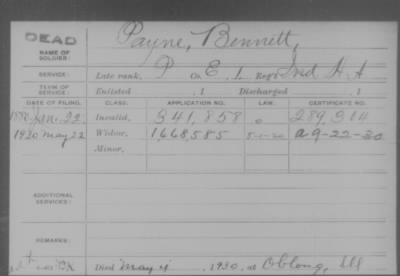 DEAD
Payne, Bennett,
NAME OF SOLDIER:
SERVICE: Late rank, P Co. E, 1 Reg't Ind H A
TERM OF SERVICE: Enlisted , 1 Discharged , 1
DATE OF FILING. CLASS. APPLICATION NO. LAW. CERTIFICATE NO.
1880 Jan. 22 Invalid, 341,858 289,314
1930 May 22 Widow, 1,668,585 5-1-20 a 9-22-30
Minor,
ADDITIONAL SERVICES:
REMARKS:
Died May 4, 1930, at Oblong, Ill